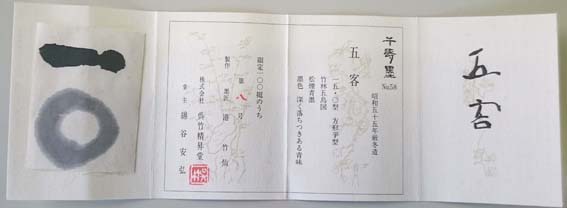 五客
千寿墨
No.58
昭和五十五年厳冬造
五客
一五・〇型 方形
竹林五鳥図
松煙青墨
墨色 深く落ちつきある青味
限定一〇〇挺のうち
第八号
製作 墨匠 港竹仙
株式会社 呉竹精昇堂
当主 綿谷安弘